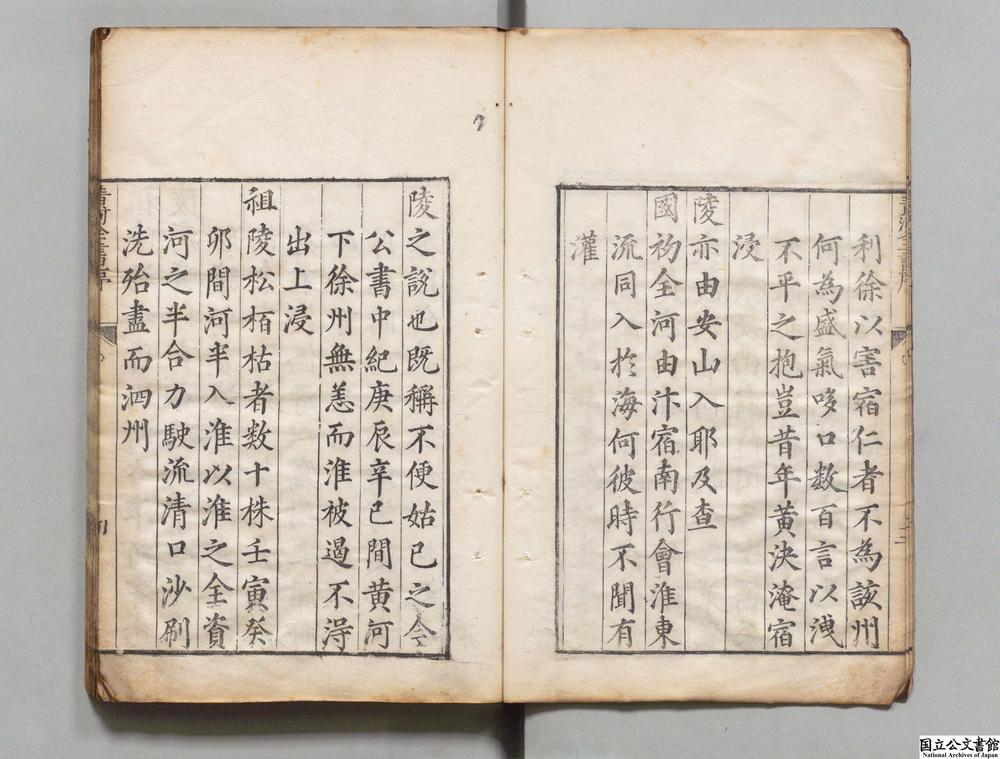 利徐以害宿仁者不為該州
何為盛氣哆口数百言以洩
不平之抱豈昔年黄決淹宿
浸
陵亦由安山入耶及查
國初全河由汴宿南行會淮東
流同入於海何彼時不聞有
灌
陵之說也既稱不便姑已之今
公書中紀庚辰辛巳間黄河
下徐州無恙而淮被遏不淂
出上浸
祖陵松栢枯者数十株壬寅癸
夘間河半入淮以淮之全資
河之半合力駛流清口沙刷
洗殆盡而泗州
国立公文書館
National Archives of Japan